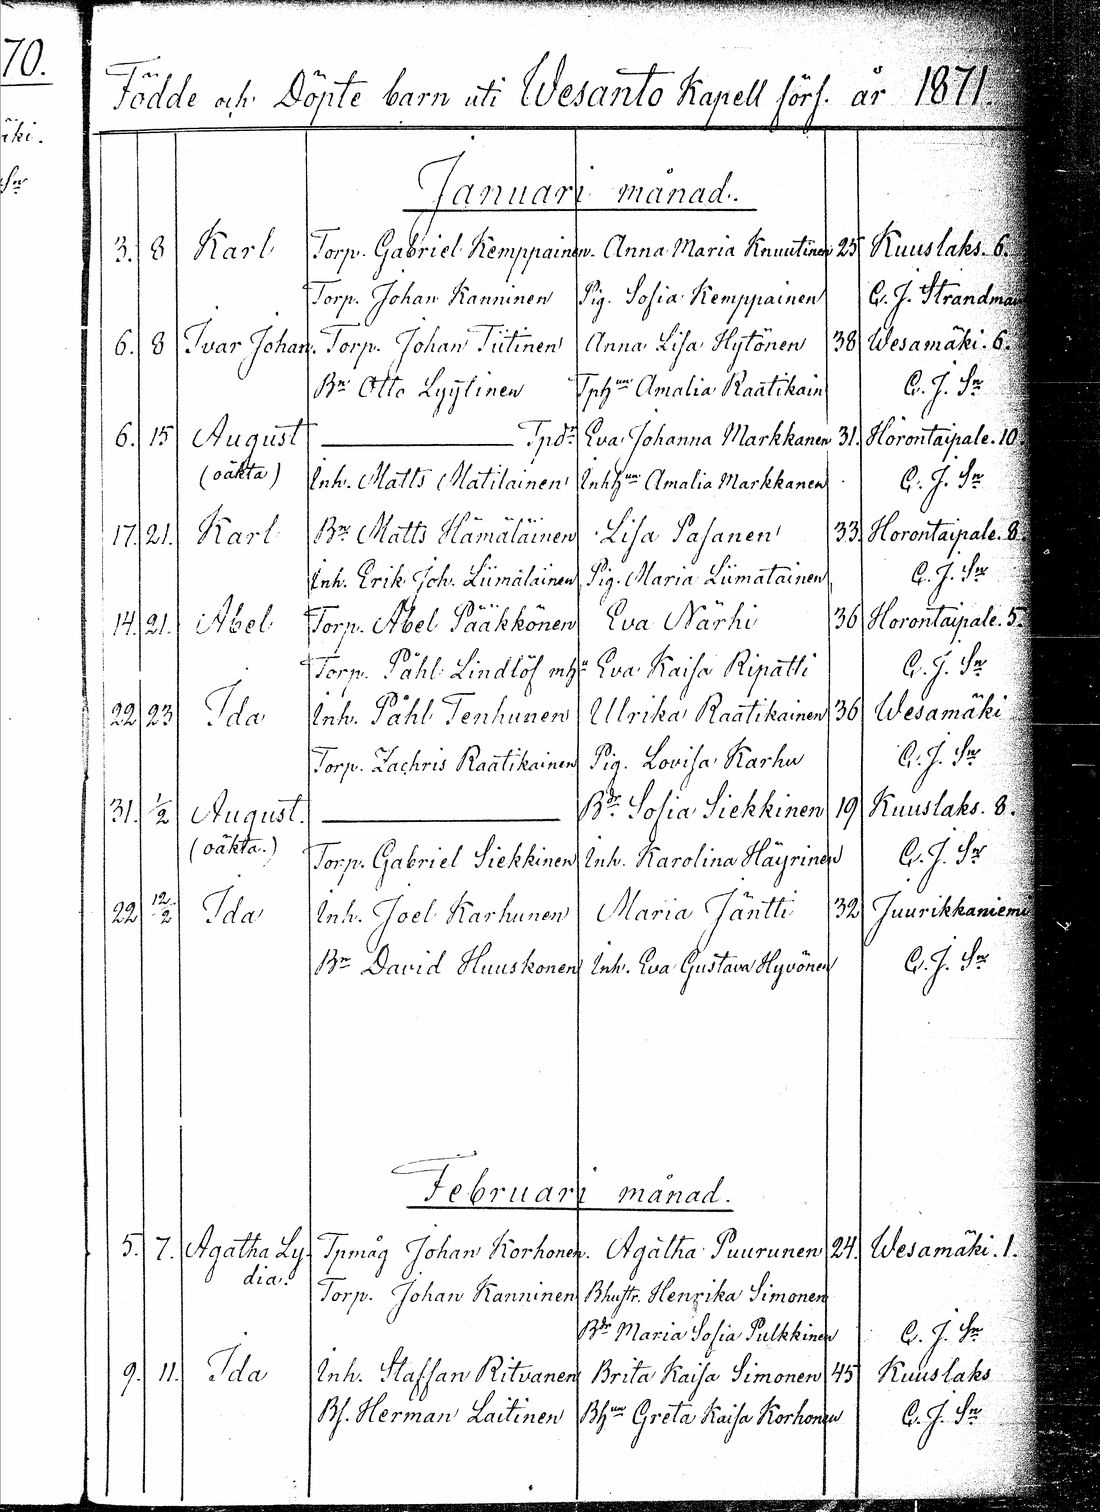 70.
äki.
Sn
Födde och Döpte barn uti Wesanto Kapell förs. år 1871.
Januari månad.
3. 8 Karl Torp. Gabriel Kemppainen. Anna Maria Knuutinen 25 Kuuslaks. 6.
Torp. Johan Kanninen Pig. Sofia Kemppainen C. J. Strandman
6. 8 Ivar Johan. Torp. Johan Tiitinen Anna Lisa Hytönen 38 Wesamäki. 6.
Bn Otto Lyytinen Tphun Amalia Raatikain C. J. Sn
6. 15 August Tpdr Eva Johanna Markkanen 31. Horontaipale. 10.
(oäkta) Inh. Matts Matilainen Inhhun Amalia Markkanen C. J. Sn
17. 21. Karl Bn Matts Hämäläinen Lisa Pasanen 33. Horontaipale. 8.
Inh. Erik Joh. Liimatainen Pig. Maria Liimatainen C. J. Sn
14. 21. Abel Torp. Abel Pääkkönen Eva Närhi 36 Horontaipale. 5.
Torp. Påhl Lindlöf mhu Eva Kaisa Ripatti C. J. Sn
22 23 Ida Inh. Påhl Tenhunen Ulrika Raatikainen 36 Wesamäki
Torp. Zachris Raatikainen Pig. Lovisa Karhu C. J. Sn
31. 1/2 August. Bdr Sofia Siekkinen 19 Kuuslaks. 8.
(oäkta.) Torp. Gabriel Siekkinen Inh. Karolina Häyrinen C. J. Sn
22 12/2 Ida Inh. Joel Karhunen Maria Jäntti 32 Juurikkaniemi
Bn David Huuskonen Inh. Eva Gustava Hyvönen C. J. Sn
Februari månad.
5. 7. Agatha Ly- Tpmåg Johan Korhonen. Agatha Puurunen 24. Wesamäki. 1.
dia. Torp. Johan Kanninen Bhustr. Henrika Simonen
Bdr Maria Sofia Pulkkinen C. J. Sn
9. 11. Ida Inh. Staffan Ritvanen Brita Kaisa Simonen 45 Kuuslaks
Bs. Herman Laitinen Bhun Greta Kaisa Korhonen C. J. Sn